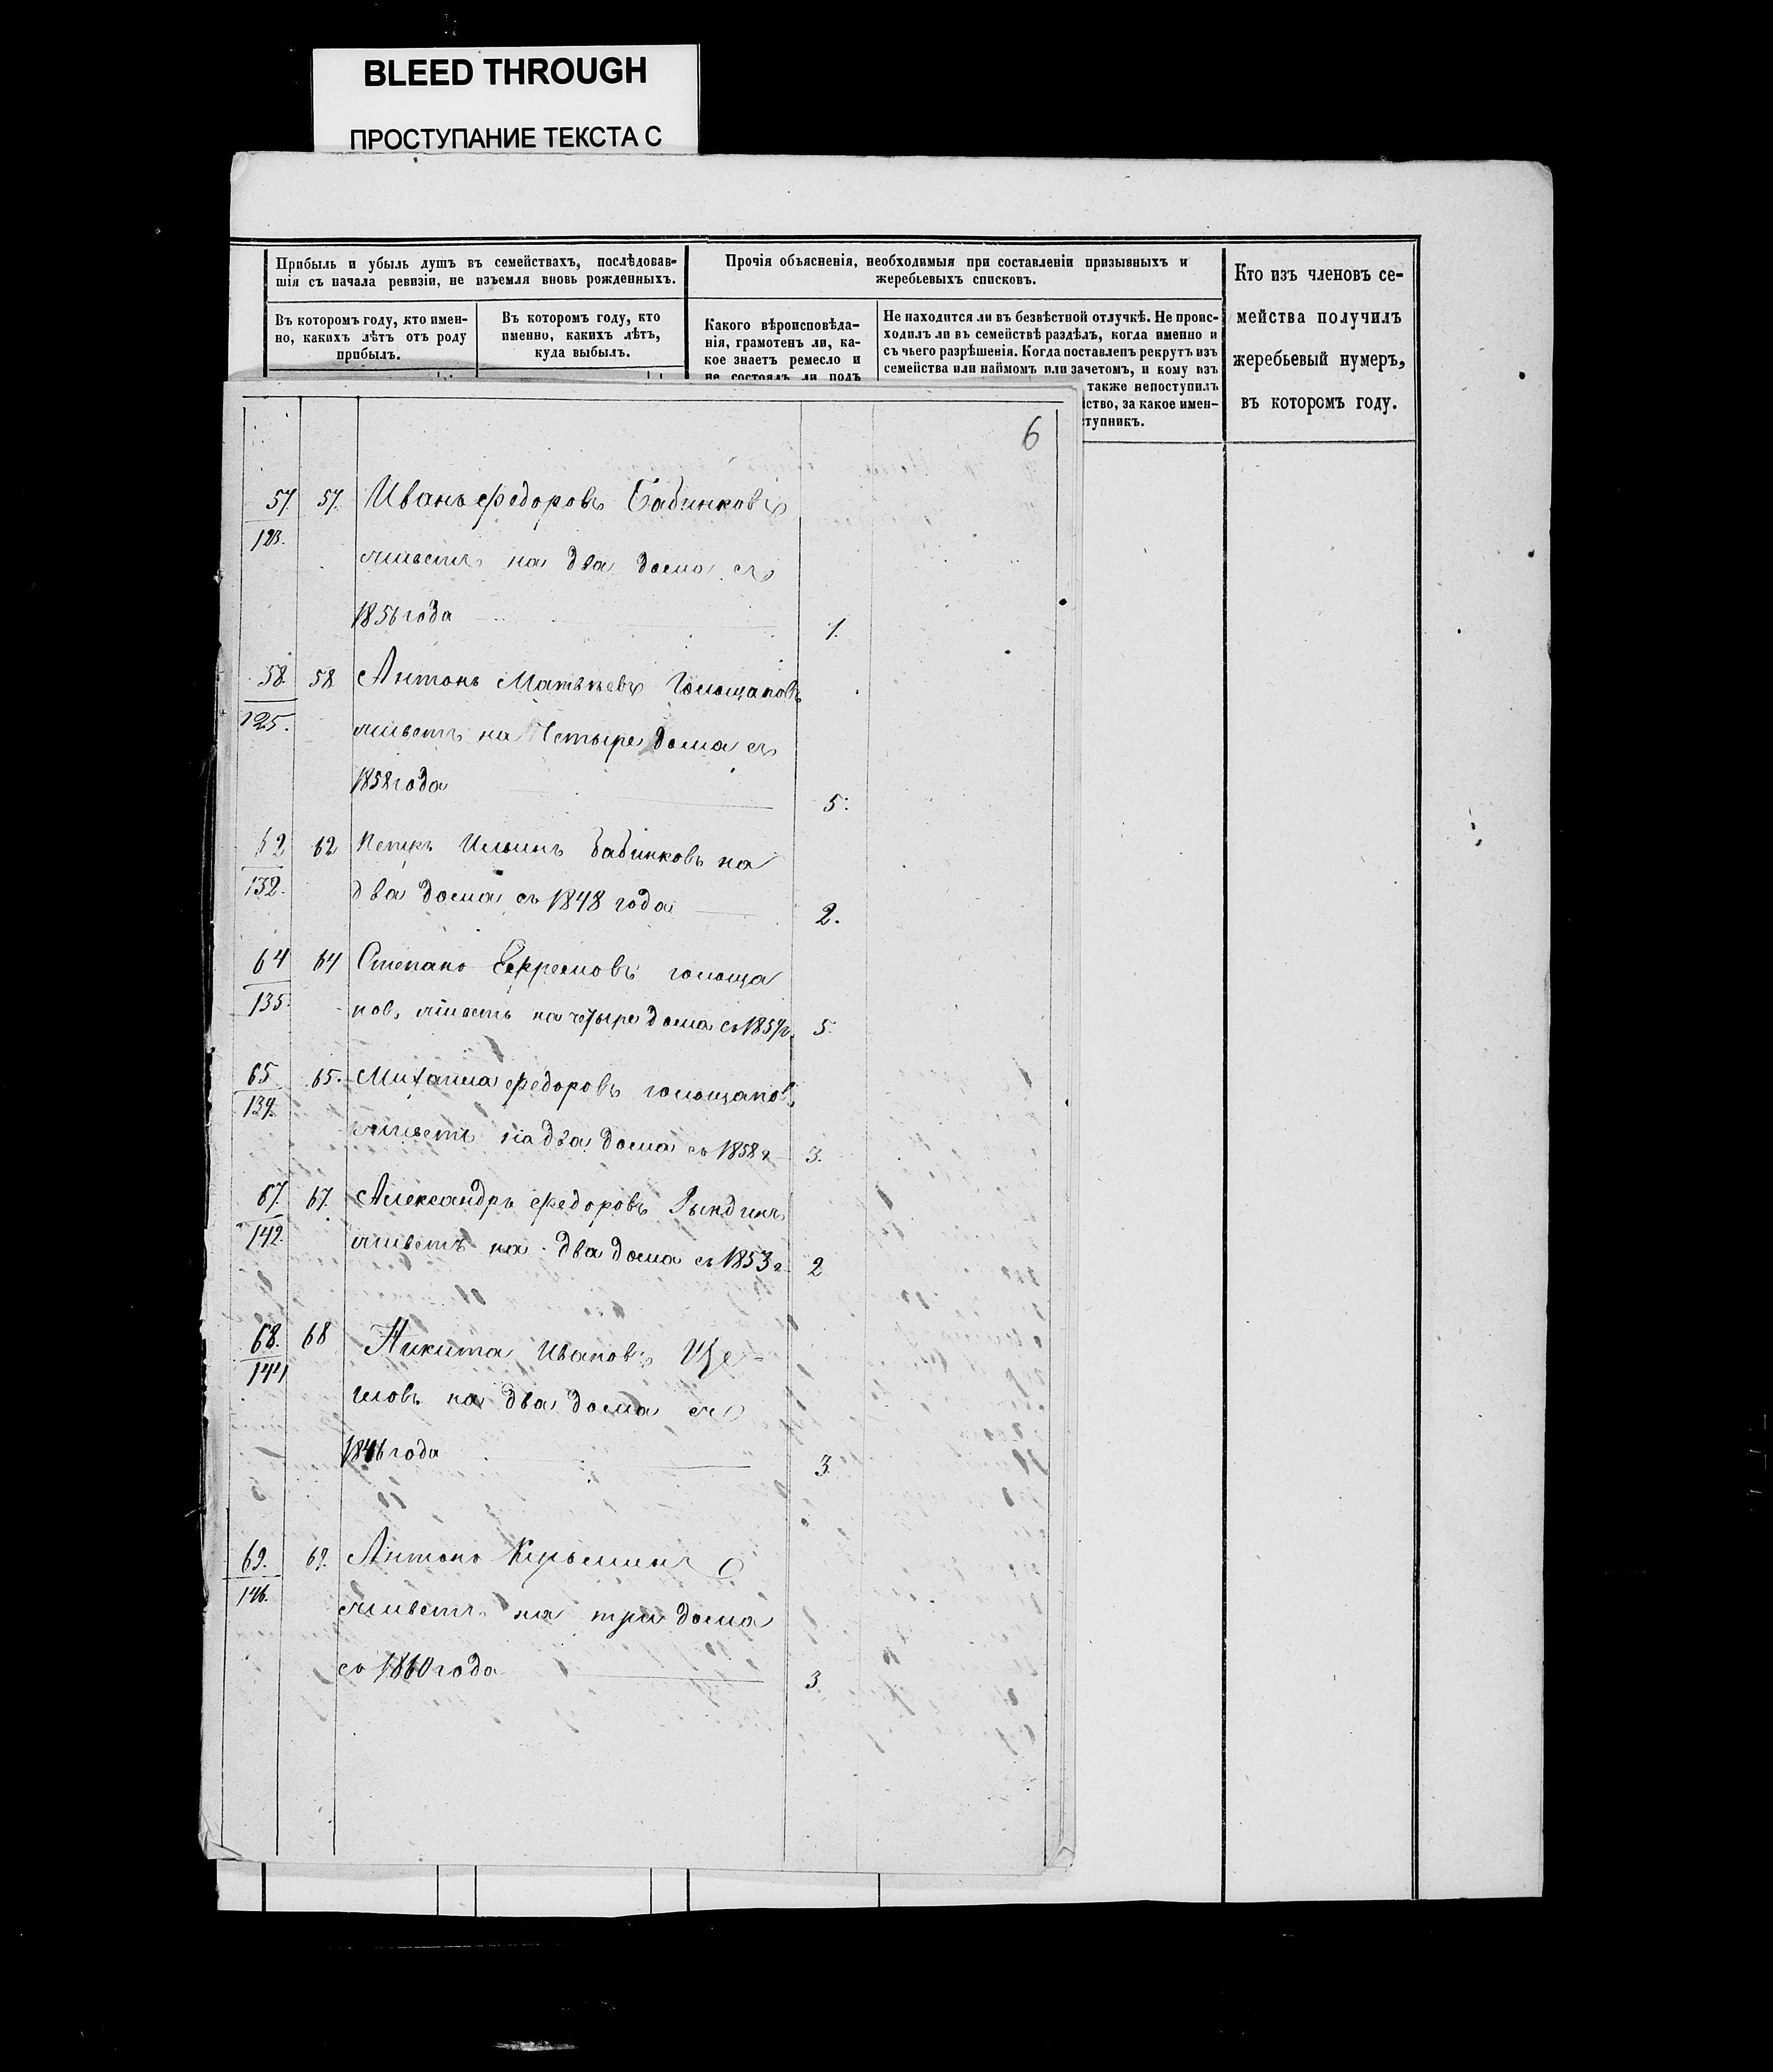 BLEED THROUGH
ПРОСТУПАНИЕ ТЕКСТА С
Прибыль и убыль душъ въ семействахъ, послѣдовав-
шія съ начала ревизіи, не изъемля вновь рожденныхъ.
Въ которомъ году, кто имен-
но, какихъ лѣтъ отъ роду
прибылъ.
Въ которомъ году, кто
именно, какихъ лѣтъ,
куда выбылъ.
Прочія объясненія, необходимыя при составленіи призывныхъ и
жеребьевыхъ списковъ.
Какого вѣроисповѣда-
нія, грамотенъ ли, ка-
кое знаетъ ремесло и
не состоялъ ли подъ
Не находится ли въ безвѣстной отлучкѣ. Не проис-
ходилъ ли въ семействѣ раздѣлъ, когда именно и
съ чьего разрѣшенія. Когда поставленъ рекрутъ изъ
семейства или наймомъ или зачетомъ, и кому изъ
также непоступилъ
ство, за какое имен-
ступникъ.
Кто изъ членовъ се-
мейства получилъ
жеребьевый нумеръ,
въ которомъ году.
6
57. 57. Иванъ Федоровъ Бабинковъ
123. живетъ на два дома съ
1856 года 1.
58. 58 Антонъ Матвѣевъ Голощаповъ
125. живетъ на Четыре дома съ
1858 года 5.
62 62 Петръ Ильинъ Бабинковъ на
132. два дома съ 1848 года 2.
64 64 Степанъ Ефремовъ голоща
135. повъ живетъ на четыре дома съ 1857г. 5.
65 65. Михаила Федоровъ голощаповъ
139. живетъ на два дома съ 1858 г 3.
67. 67. Александръ Федоровъ Рындинъ
142. живетъ на два дома съ 1853 г 2
68. 68 Никита Ивановъ Ще-
144 гловъ на два дома съ
1846 года 3.
69. 69. Антонъ Кузьминъ
146. живетъ на три дома
съ 1860 года 3